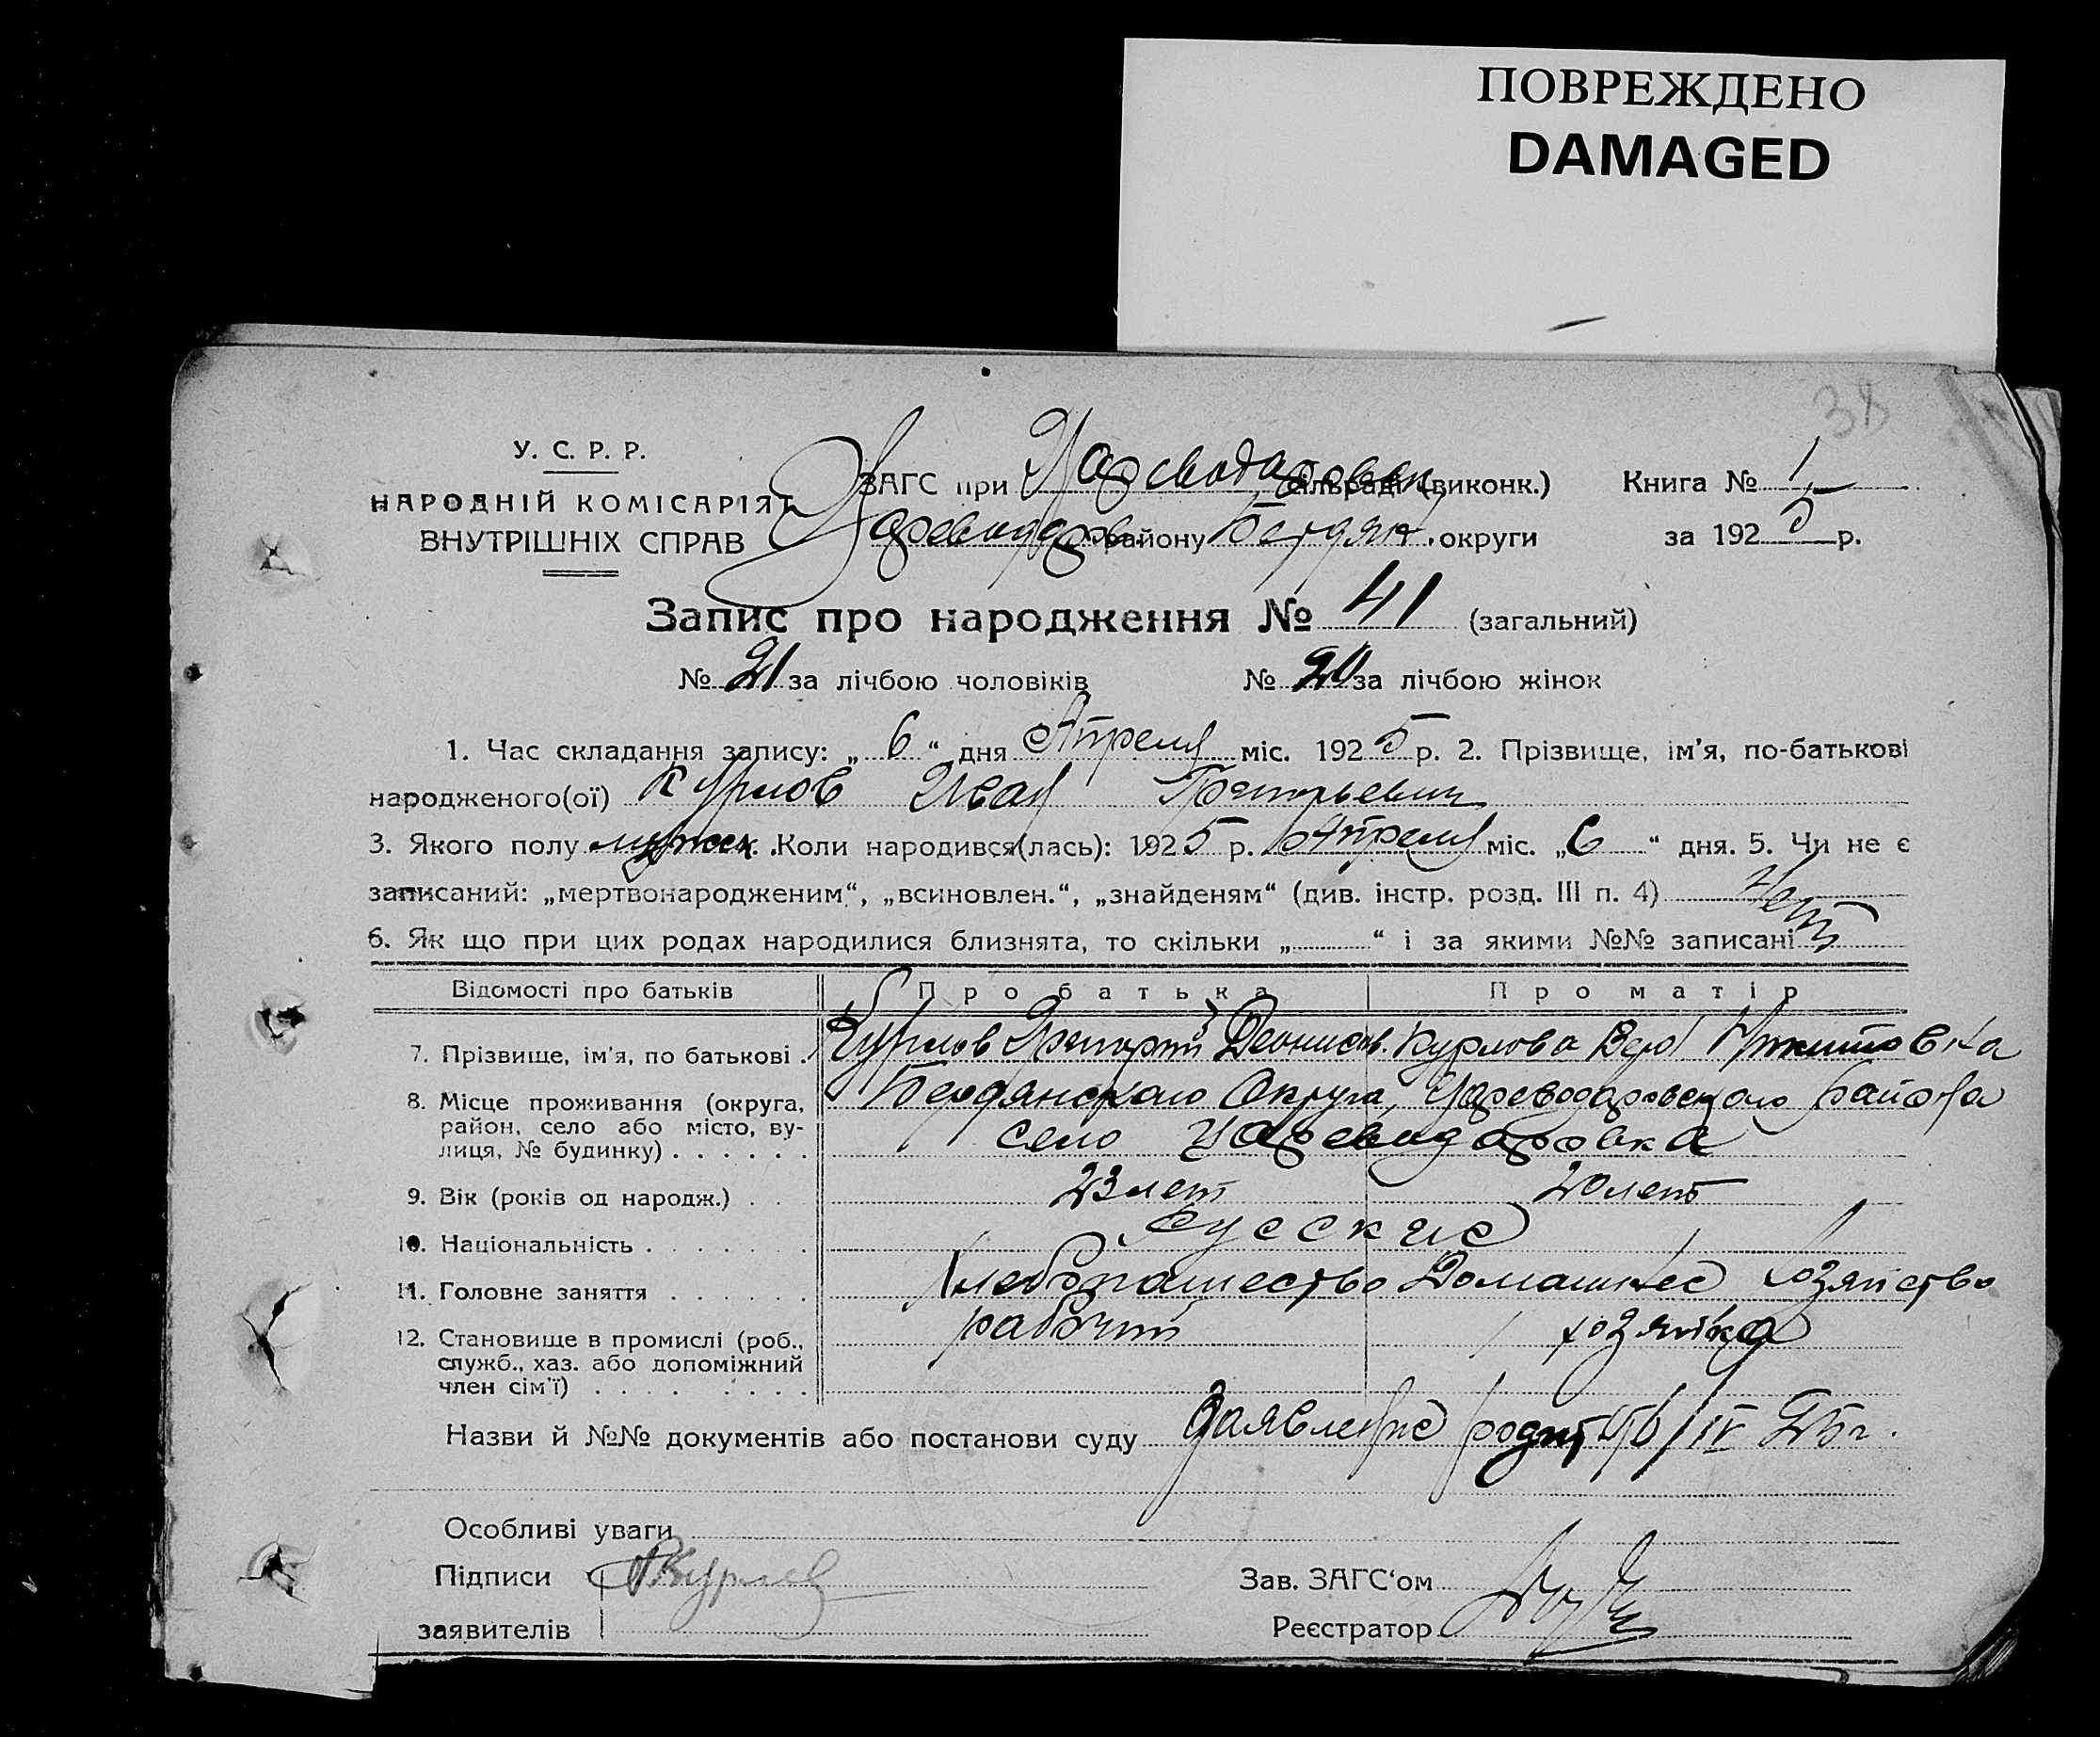 ПОВРЕЖДЕНО
DAMAGED
38
У. С. Р. Р.
НАРОДНІЙ КОМІСАРІЯТ
ВНУТРІШНІХ СПРАВ
ЗАГС при Цареводаровск. сільраді (виконк.)
Цареводаров. району Бердян. округи
Книга № 1
за 1925 р.
Запис про народження № 41 (загальний)
№ 21 за лічбою чоловіків № 20 за лічбою жінок
1. Час складання запису: „ 6 “ дня Апреля міс. 1925 р. 2. Прізвище, ім'я, по-батькові
народженого(ої) Курлов Иван Григорьевич
3. Якого полу мужск. Коли народився(лась): 1925 р. Апреля міс. „ 6 “ дня. 5. Чи не є
записаний: „мертвонародженим“, „всиновлен.“, „знайденям“ (див. інстр. розд. III п. 4) Нет
6. Як що при цих родах народилися близнята, то скільки „ “ і за якими №№ записані
Відомості про батьків Про батька Про матір
7. Прізвище, ім'я, по батькові . Курлов Григорий Деонисов. Курлова Вера Никитовна
8. Місце проживання (округа, Бердянского Округа, Цареводаровского района
район, село або місто, ву- село Царевидаровка
лиця, № будинку) . . . . . .
9. Вік (років од народж.) . . 23 лет 20 лет
10. Національність . . . . . . . Русские
11. Головне заняття . . . . . . Хлебопашество Домашнее хозяйство
12. Становище в промислі (роб., рабочий хозяйка
служб., хаз. або допоміжний
член сім'ї) . . . . . . . .
Назви й №№ документів або постанови суду Заявление родит. 6/IV 25 г.
Особливі уваги
Підписи Курлов
заявителів
Зав. ЗАГС'ом
Реєстратор